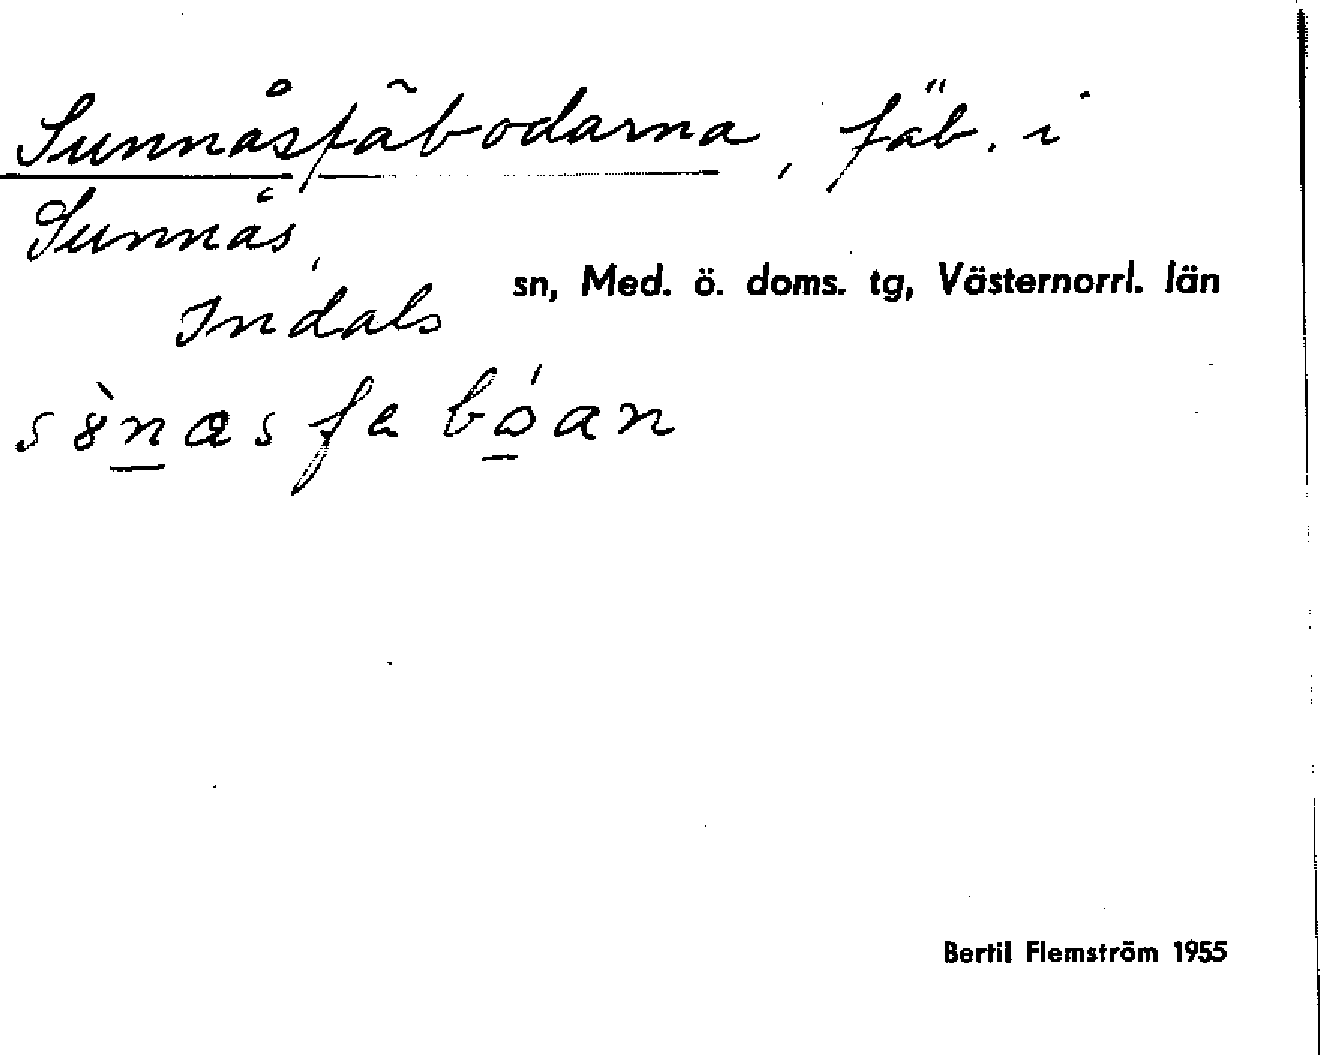 Sunnåsfäbodarna, fäb. i
Sunnås,
Indals sn, Med. ö. doms. tg, Västernorrl. län
Bertil Flemström 1955